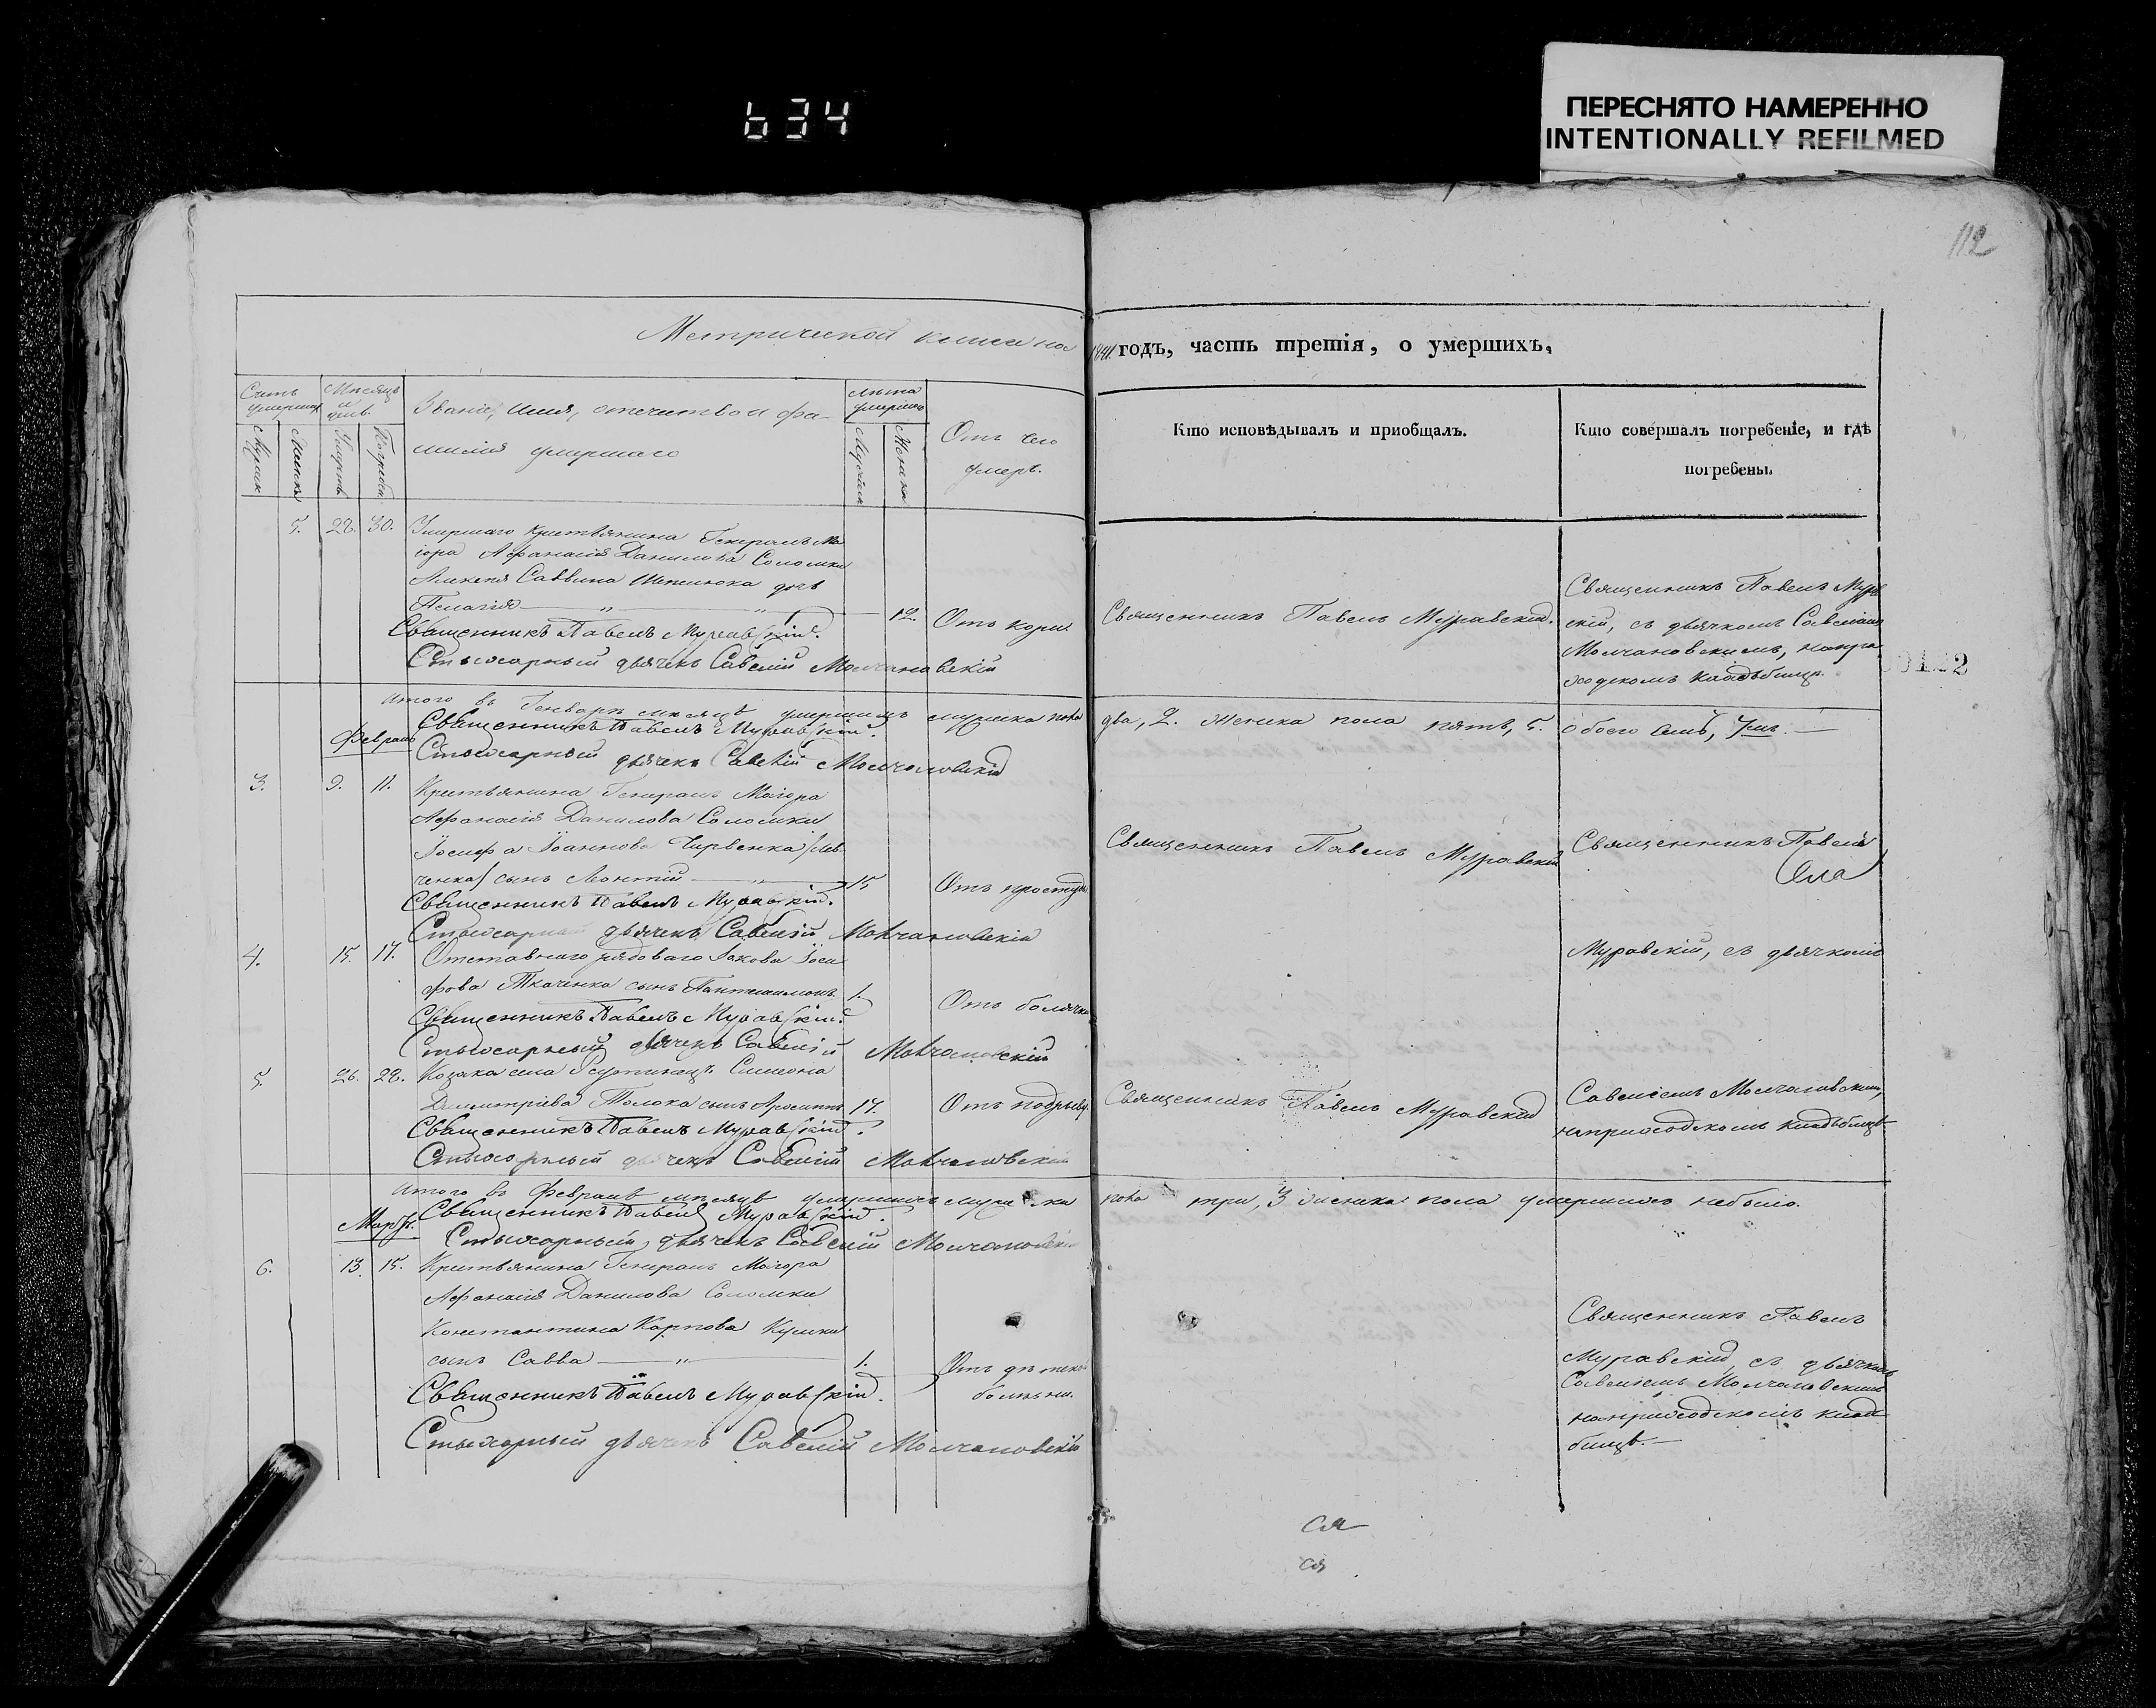 634
ПЕРЕСНЯТО НАМЕРЕННО
INTENTIONALLY REFILMED
112
Метрической книги на
1841 годъ, часть третія, о умершихъ,
Счетъ умершихъ
Мѣсяцъ и день
Званіе, имя, отечество и фа-
милія умершаго
лѣта умершаго
Отъ чего
умеръ.
Кто исповѣдывалъ и пріобщалъ.
Кто совершалъ погребеніе, и гдѣ
погребены.
5. 28. 30. Умершаго крестьянина Генералъ Ма
іора Афанасія Данилова Соломки
Саввина дочь
Пелагія 12. Отъ кори.
Священникъ Павелъ Муравскій.
Стихарный дьячекъ Савелій Молчановскій
Священникъ Павелъ Муравскій.
Священникъ Павелъ Мурав
скій, съ дьячкомъ Савеліемъ
Молчановскимъ, на при
ходскомъ кладбищѣ.
Итого въ Генварѣ мѣсяцѣ умершихъ мужеска пола два, 2. женска пола пять, 5. обоего семь, 7мь.
Священникъ Павелъ Муравскій.
Февраль
Стихарный дьячекъ Савелій Молчановскій
3. 9. 11. Крестьянина Генералъ Маіора
Афанасія Данилова Соломки
Іосифа Іоаннова Червенка /Лев
ченка/ сынъ Леонтій 15 Отъ простуды
Священникъ Павелъ Муравскій.
Стихарный дьячекъ Савелій Молчановскій
Священникъ Павелъ Муравскій
Священникъ Павелъ
4. 15. 17. Отставнаго рядоваго Іакова Іоси
фова Ткаченка сынъ Пантелимонъ 1. Отъ болячки
Священникъ Павелъ Муравскій.
Стихарный дьячекъ Савелій Молчановскій
Муравскій, съ дьячкомъ
5. 26. 28. Козака села Симеона
Димитріева Толока сынъ 17. Отъ подрыву
Священникъ Павелъ Муравскій.
Стихарный дьячекъ Савелій Молчановскій
Священникъ Павелъ Муравскій
Савеліемъ Молчановскимъ,
на приходскомъ кладбищѣ.
Итого въ Февралѣ мѣсяцѣ умершихъ мужеска пола три, 3 женска пола умершихъ небыло.
Священникъ Павелъ Муравскій.
Мартъ.
Стихарный дьячекъ Савелій Молчановскій
6. 13. 15. Крестьянина Генералъ Маіора
Афанасія Данилова Соломки
Константина Карпова Кулика
сынъ Савва 1. Отъ дѣтской
болѣзни.
Священникъ Павелъ Муравскій.
Стихарный дьячекъ Савелій Молчановскій
Священникъ Павелъ
Муравскій съ дьячкомъ
Савеліемъ Молчановскимъ
на приходскомъ клад
бищѣ.